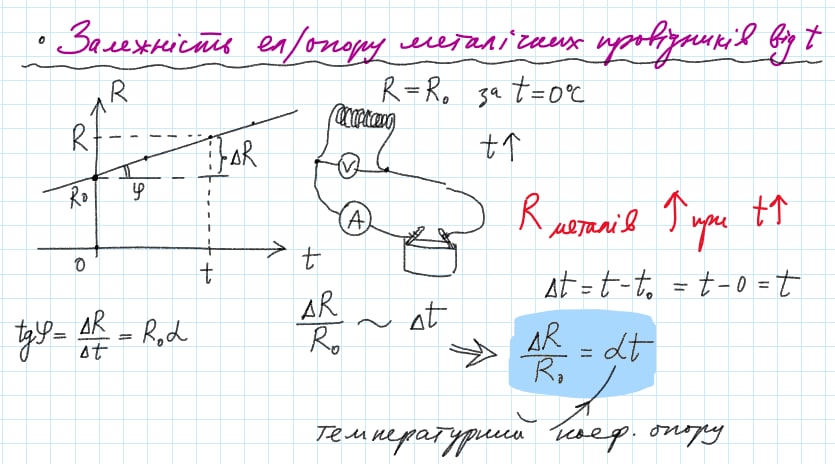 • Залежність ел/опору металічних провідників від t
R = R₀ за t = 0°C
t↑
R
R
ΔR
R₀
φ
0
t
t
V
A
R металів ↑ при t↑
Δt = t - t₀ = t - 0 = t
tgφ = ΔR/Δt = R₀α
ΔR/R₀ ~ Δt
⇒ ΔR/R₀ = αt
температурний коеф. опору